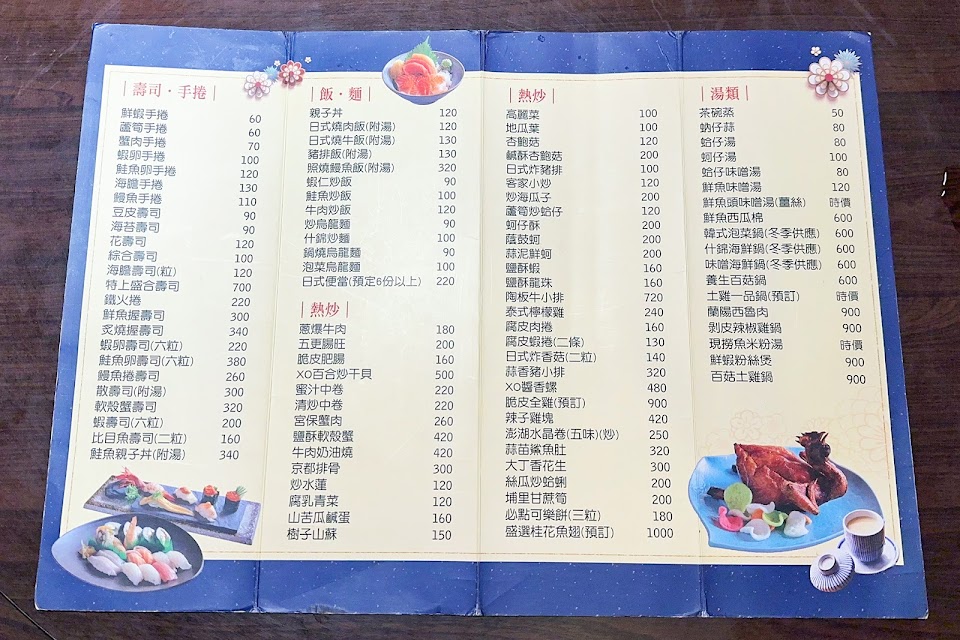 壽司・手捲
鮮蝦手捲 60
蘆筍手捲 60
蟹肉手捲 70
蝦卵手捲 100
鮭魚卵手捲 120
海膽手捲 130
鰻魚手捲 110
豆皮壽司 90
海苔壽司 90
花壽司 120
綜合壽司 100
海膽壽司(粒) 120
特上盛合壽司 700
鐵火捲 220
鮮魚握壽司 300
炙燒握壽司 340
蝦卵壽司(六粒) 220
鮭魚卵壽司(六粒) 380
鰻魚捲壽司 260
散壽司(附湯) 300
軟殼蟹壽司 320
蝦壽司(六粒) 200
比目魚壽司(二粒) 160
鮭魚親子丼(附湯) 340
飯・麵
親子丼 120
日式燒肉飯(附湯) 120
日式燒牛飯(附湯) 130
豬排飯(附湯) 130
照燒鰻魚飯(附湯) 320
蝦仁炒飯 90
鮭魚炒飯 100
牛肉炒飯 120
炒烏龍麵 90
什錦炒麵 100
鍋燒烏龍麵 90
泡菜烏龍麵 100
日式便當(預定6份以上) 220
熱炒
蔥爆牛肉 180
五更腸旺 200
脆皮肥腸 160
XO百合炒干貝 500
蜜汁中卷 220
清炒中卷 220
宮保蟹肉 260
鹽酥軟殼蟹 420
牛肉奶油燒 420
京都排骨 300
炒水蓮 120
腐乳青菜 120
山苦瓜鹹蛋 160
樹子山蘇 150
熱炒
高麗菜 100
地瓜葉 100
杏鮑菇 120
鹹酥杏鮑菇 200
日式炸豬排 100
客家小炒 120
炒海瓜子 200
蘆筍炒蛤仔 120
蚵仔酥 200
蔭鼓蚵 200
蒜泥鮮蚵 200
鹽酥蝦 160
鹽酥龍珠 160
陶板牛小排 720
泰式檸檬雞 240
腐皮肉捲 160
腐皮蝦捲(二條) 130
日式炸香菇(二粒) 140
蒜香豬小排 320
XO醬香螺 480
脆皮全雞(預訂) 900
辣子雞塊 420
澎湖水晶卷(五味)(炒) 250
蒜苗鯊魚肚 320
大丁香花生 300
絲瓜炒蛤蜊 200
埔里甘蔗筍 200
必點可樂餅(三粒) 180
盛選桂花魚翅(預訂) 1000
湯類
茶碗蒸 50
蚋仔蒜 80
蛤仔湯 80
蚵仔湯 100
蛤仔味噌湯 80
鮮魚味噌湯 120
鮮魚頭味噌湯(薑絲) 時價
鮮魚西瓜棉 600
韓式泡菜鍋(冬季供應) 600
什錦海鮮鍋(冬季供應) 600
味噌海鮮鍋(冬季供應) 600
養生百菇鍋 600
土雞一品鍋(預訂) 時價
蘭陽西魯肉 900
剝皮辣椒雞鍋 900
現撈魚米粉湯 時價
鮮蝦粉絲煲 900
百菇土雞鍋 900